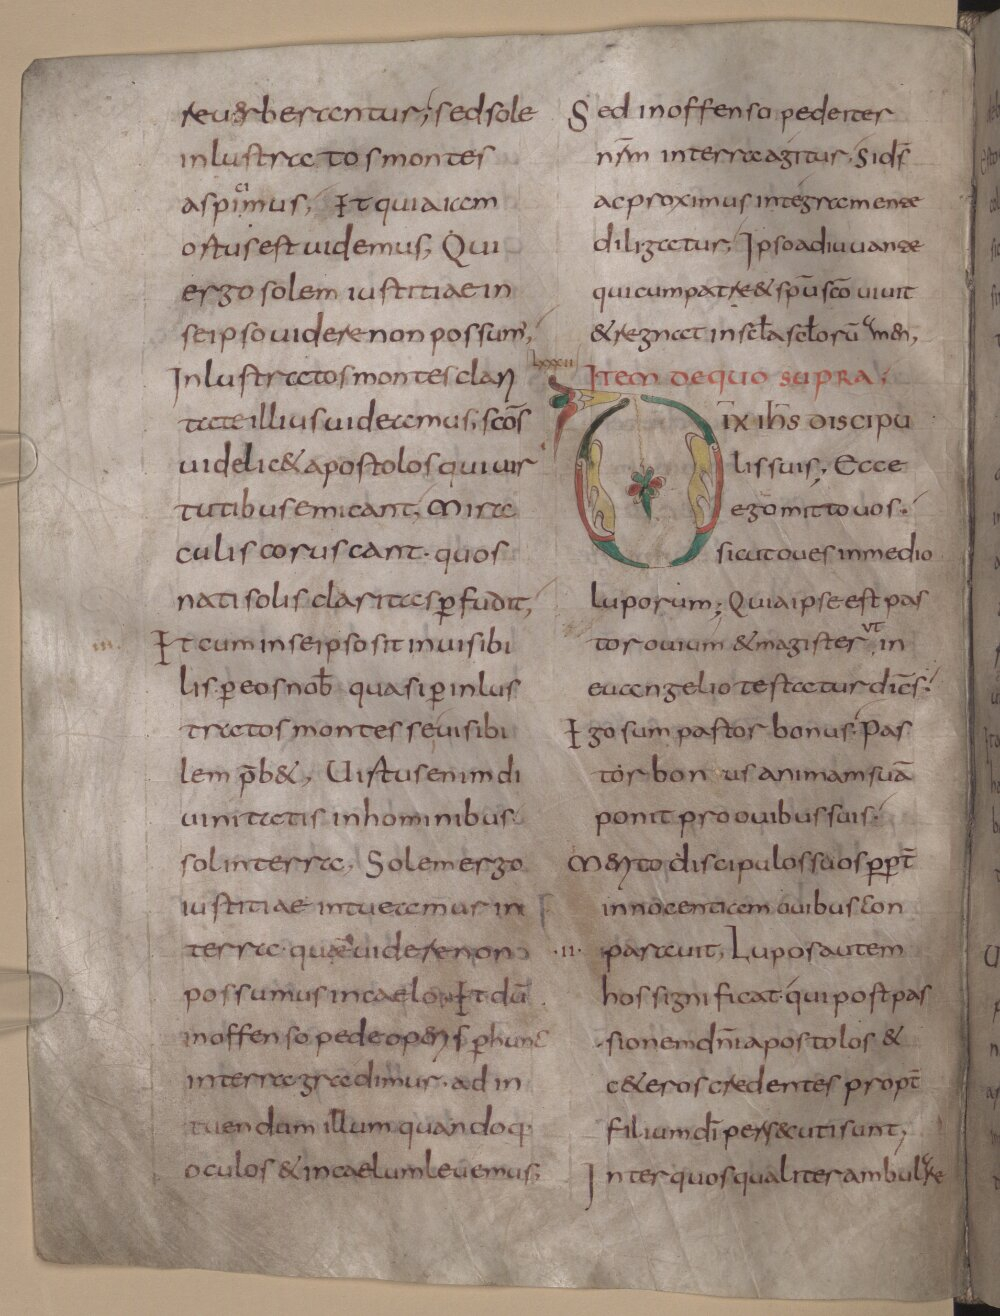 reuerberentur; sed sole
inlustratos montes
aspicimus; Et quia iam
ostus est uidemus; Qui
ergo solem iustitiae in
se ipso uidere non possum;
Inlustratos montes clari
tate illius uideamus, scōs
uidelic& apostolos qui uir
tutibus emicant, Mira
culis coruscant. quos
nati solis claritas p̄fudit;
Et cum in se ipso sit inuisibi
lis. p̄ eos nob̄ quasi p̄ inlus
tratos montes se uisibi
lem p̄b&; Uirtus enim di
uinitatis in hominibus
sol in terra, Solem ergo
iustitiae intueamur in
terra. quē uidere non
possumus in caelo; Et dū
inoffenso pede
in terra gradimur. ad in
tuendum illum quandoq,
oculos & in caelum leuemus;
lxxxii
Sed inoffenso pede iter
nr̄m in terra agitur. Si dˢ
ac proximus integra mente
diligatur, Ipso adiuuante
qui cum patre & spū scō uiuit
& regnat in scl̄a scl̄orū amen;
Item de quo supra;
Dix ih̄s discipu
lis suis; Ecce
ego mitto uos.
sicut oues in medio
luporum; Quia ipse est pas
tor ouium & magister, ut in
euangelio testatur dicēs;
Ego sum pastor bonus. Pas
tor bonus animam suā
ponit pro ouibus suis.
Merito discipulos suos p̄p̄t̄
innocentiam ouibus con
.II. parauit, Lupos autem
hos significat. qui post pas
sionem dn̄i apostolos &
c&eros credentes propt̄
filium dī persecuti sunt;
Inter quos qualiter ambulare
III.